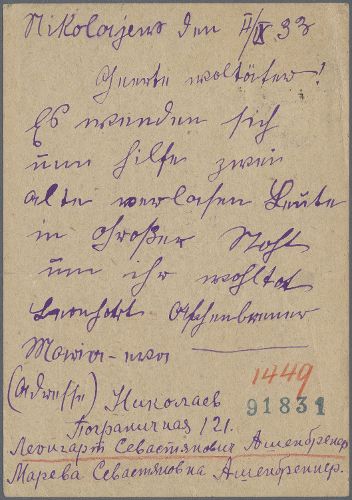 Nikolajew den II/IX 33
Geerte woltäter!
Es wenden sich
um hilfe zwei
alte verlasen Leute
in Großer Noht
um ihr wohltat
Leonhart Aschenbrener
Maria
(Adresse) Николаев
Пограничная 121.
Леонгарт Севастянович Ашенбренер
Марева Севастяновна Ашенбреннер.
1449
91831